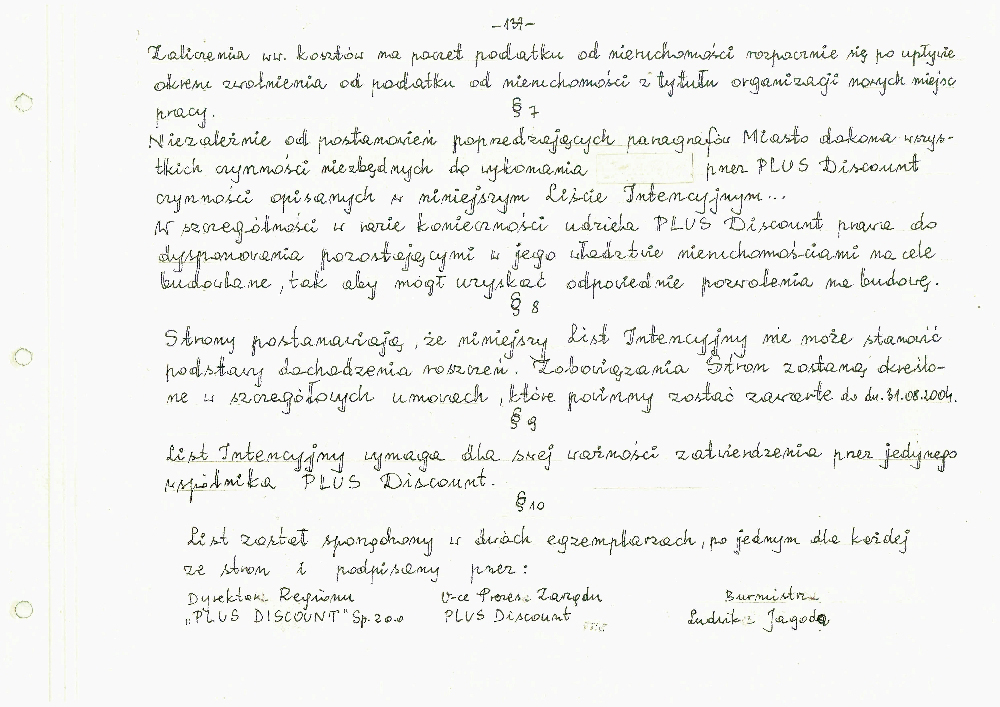 -137-
Zaliczenia ww. kosztów na poczet podatku od nieruchomości rozpocznie się po upływie
okresu zwolnienia od podatku od nieruchomości z tytułu organizacji nowych miejsc
pracy.
§ 7
Niezależnie od postanowień poprzedzających paragrafów Miasto dokona wszys-
tkich czynności niezbędnych do wykonania przez PLUS Discount
czynności opisanych w niniejszym Liście Intencyjnym...
W szczególności w razie konieczności udziela PLUS Discount prawa do
dysponowania pozostającymi w jego władztwie nieruchomościami na cele
budowlane, tak aby mógł uzyskać odpowiednie pozwolenia na budowę.
§ 8
Strony postanawiają, że niniejszy List Intencyjny nie może stanowić
podstawy dochodzenia roszczeń. Zobowiązania Stron zostaną określo-
ne w szczegółowych umowach, które powinny zostać zawarte do dn. 31.08.2004.
§ 9
List Intencyjny wymaga dla swej ważności zatwierdzenia przez jedynego
wspólnika PLUS Discount.
§ 10
List został sporządzony w dwóch egzemplarzach, po jednym dla każdej
ze stron i podpisany przez:
Dyrektora Regionu Vice Prezesa Zarządu Burmistrza
„PLUS DISCOUNT" Sp. z o.o PLUS Discount Ludwika Jagodę